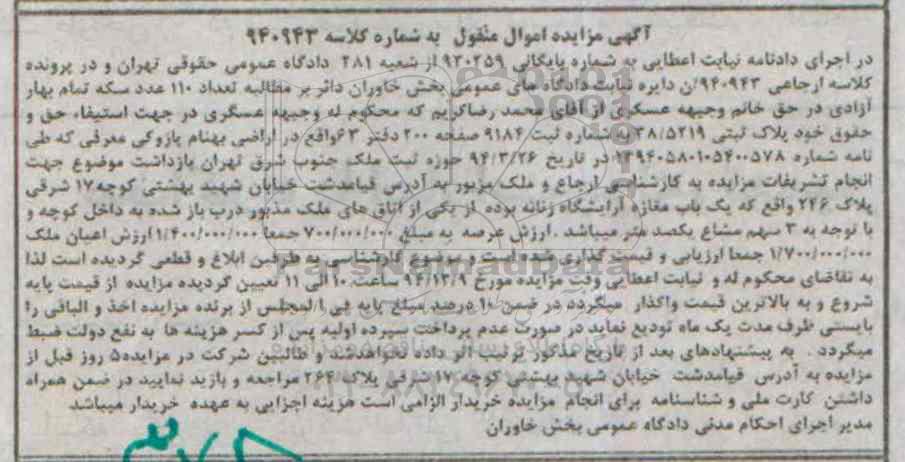 آگهی مزایده اموال منقول به شماره کلاسه ۹۴۰۹۴۳
در اجرای دادنامه نیابت اعطایی به شماره بایگانی ۹۳۰۲۵۹ از شعبه ۲۸۱ دادگاه عمومی حقوقی تهران و در پرونده
کلاسه ارجاعی ۹۴۰۹۴۳/ن دایره نیابت دادگاه های عمومی بخش خاوران دائر بر مطالبه تعداد ۱۱۰ عدد سکه تمام بهار
آزادی در حق خانم وجیهه عسکری از آقای محمد رضاکریم که محکوم له وجیهه عسکری در جهت استیفاء حق و
حقوق خود پلاک ثبتی ۳۸/۵۲۱۹ به شماره ثبت ۹۱۸۴ صفحه ۲۰۰ دفتر ۶۳واقع در اراضی بهنام پازوکی معرفی که طی
نامه شماره ۱۳۹۴۰۵۸۰۱۰۵۴۰۰۵۷۸ در تاریخ ۹۴/۳/۲۶ حوزه ثبت ملک جنوب شرق تهران بازداشت موضوع جهت
انجام تشریفات مزایده به کارشناسی ارجاع و ملک مزبور به آدرس قیامدشت خیابان شهید بهشتی کوچه۱۷ شرقی
پلاک ۲۴۶ واقع که یک باب مغازه آرایشگاه زنانه بوده از یکی از اتاق های ملک مذبور درب باز شده به داخل کوچه و
با توجه به ۳ سهم مشاع یکصد متر میباشد .ارزش عرصه به مبلغ ۷۰۰/۰۰۰/۰۰۰ جمعا ۱/۴۰۰/۰۰۰/۰۰۰ارزش اعیان ملک
۱/۷۰۰/۰۰۰/۰۰۰ جمعا ارزیابی و قیمت گذاری شده است و موضوع کارشناسی به طرفین ابلاغ و قطعی گردیده است لذا
به تقاضای محکوم له و نیابت اعطایی وقت مزایده مورخ ۹۴/۱۲/۹ ساعت ۱۰ الی ۱۱ تعیین گردیده مزایده از قیمت پایه
شروع و به بالاترین قیمت واگذار میگردد در ضمن ۱۰ درصد مبلغ پایه فی المجلس از برنده مزایده اخذ و الباقی را
بایستی ظرف مدت یک ماه تودیع نماید در صورت عدم پرداخت سپرده اولیه پس از کسر هزینه ها به نفع دولت ضبط
میگردد . به پیشنهادهای بعد از تاریخ مذکور ترتیب اثر داده نخواهدشد و طالبین شرکت در مزایده۵ روز قبل از
مزایده به آدرس قیامدشت خیابان شهید بهشتی کوچه ۱۷ شرقی پلاک ۲۶۴ مراجعه و بازید نمایید در ضمن همراه
داشتن کارت ملی و شناسنامه برای انجام مزایده خریدار الزامی است هزینه اجرایی به عهده خریدار میباشد
مدیر اجرای احکام مدنی دادگاه عمومی بخش خاوران
ParsNamadData